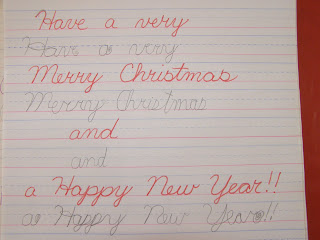 Have a very
Have a very
Merry Christmas
Merry Christmas
and
and
a Happy New Year!!
a Happy New Year!!